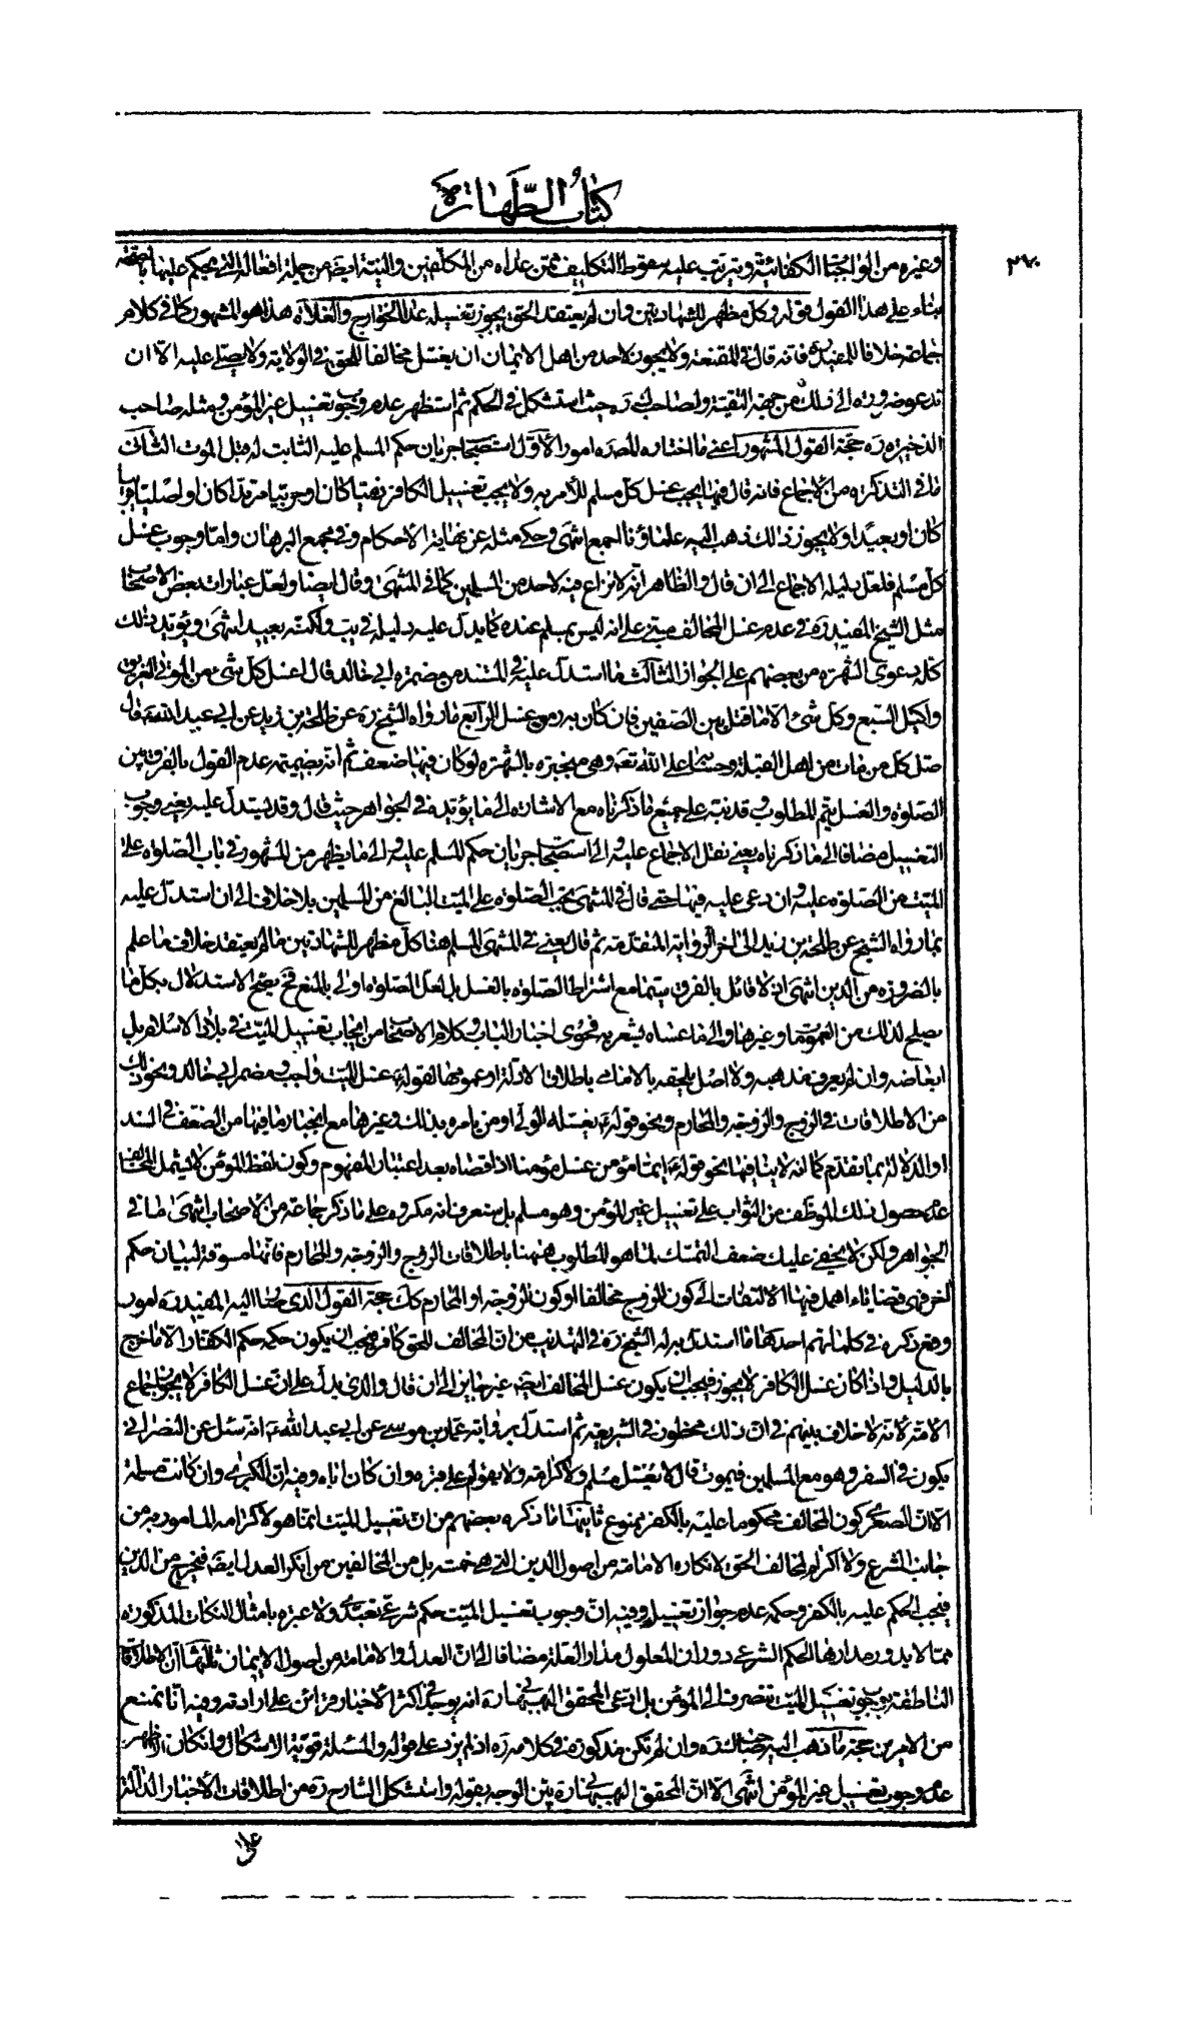 كتاب الطهارة
٢٦٠
وغيره من الواجبات الكفائية ويترتب عليه سقوط التكليف عمن عداه من المكلفين والنية ايضا من جملة افعاله التي يحكم عليها
بناء على هذا القول قوله وكل مظهر للشهادتين وان لم يعتقد الحق يجوز تغسيله عدا الخوارج والغلاة هذا هو المشهور كما في كلام
جماعة خلافا للمفيد ره فانه قال في المقنعة ولا يجوز لاحد من اهل الايمان ان يغسل مخالفا للحق في الولاية ولا يصلي عليه الا ان
تدعو ضرورة الى ذلك من جهة التقية ولصاحب ك ره حيث استشكل في الحكم ثم استظهر عدم وجوب تغسيل غير المؤمن ومثله صاحب
الذخيرة ره حجة القول المشهور اعني ما اختاره المص ره امور الأول استصحاب جريان حكم المسلم عليه الثابت له قبل الموت الثاني
ما في التذكرة من الاجماع فانه قال فيها يجب غسل كل مسلم للأمر به ولا يجب تغسيل الكافر ذميا كان او حربيا مرتدا كان او اصليا قريبا
كان او بعيدا ولا يجوز ذلك ذهب اليه علماؤنا اجمع انتهى وحكي مثله عن نهاية الأحكام وفي مجمع البرهان واما وجوب غسل
كل مسلم فلعل دليله الاجماع الى ان قال والظاهر انه لا نزاع فيه لاحد من المسلمين كما في المنتهى وقال ايضا ولعل عبارات بعض الأصحاب
مثل الشيخ المفيد ره في عدم غسل المخالف مبني على انه ليس بمسلم عنده كما يدل عليه دليله في يب ولكنه بعيد انتهى ويؤيد ذلك
كله دعوى الشهرة من بعضهم على الجواز الثالث ما استدل عليه في المستند من مضمرة ابي خالد قال اغسل كل شيء من الموتى الغريق
واكيل السبع وكل شيء الا ما قتل بين الصفين فان كان به رمق غسل الرابع ما رواه الشيخ ره عن طلحة بن زيد عن ابي عبد الله ع قال
صل كل من مات من اهل القبلة وحسابه على الله تعه وهي منجبرة بالشهرة لو كان فيها ضعف ثم انه بضميمة عدم القول بالفرق بين
الصلوة والغسل يتم المطلوب وقد نبه على جميع ما ذكرناه مع الاشارة الى ما يؤيده في الجواهر حيث قال وقد يستدل عليه يعني وجوب
التغسيل مضافا الى ما ذكرناه يعني نقل الاجماع عليه والى استصحاب جريان حكم المسلم عليه والى ما يظهر من المشهور في باب الصلوة على
الميت من الصلوة عليه وان دعي عليه فيها حتى قال في المنتهى يجب الصلوة على الميت البالغ من المسلمين بلا خلاف الى ان استدل عليه
بما رواه الشيخ عن طلحة بن زيد الى اخر الرواية المتقدمة ثم قال يعني في المنتهى المسلم هنا كل مظهر للشهادتين ما لم يعتقد خلاف ما علم
بالضرورة من الدين انتهى اذ لا قائل بالفرق سيما مع اشتراط الصلوة بالغسل بل لعل الصلوة اولى بالمنع فح يصح الاستدلال بكل ما
يصلح لذلك من العمومات وغيرها والى ما عساه يشعر به فحوى اخبار الباب وكلام الاصحاب من ايجاب تغسيل الميت في بلاد الاسلام بل
ابعاضه وان لم يعرف مذهبه ولا اصل يلحقه بالامامي باطلاق الادلة او عمومها لقوله ع غسل الميت واجب ومضمر ابي خالد ونحو ذلك
من الاطلاقات في الزوج والزوجة والمحارم ونحو قوله ع يغسله الولي او من يامره بذلك وغيرها مع انجبار ما فيها من الضعف في السند
او الدلالة بما تقدم كما انه لا ينافيها نحو قوله ع ايما مؤمن غسل مؤمنا اذ اقصاه بعد اعتبار المفهوم وكون لفظ المؤمن لا يشمل المخالف
عدم حصول ذلك الموظف من الثواب على تغسيل غير المؤمن وهو مسلم بل ستعرف انه مكروه على ما ذكر جماعة من الأصحاب انتهى ما في
الجواهر ولكن لا يخفى عليك ضعف التمسك لما هو المطلوب هيهنا باطلاقات الزوج والزوجة والمحارم فانها مسوقة لبيان حكم
اخر فهي قضايا اهمل فيها الالتفات الى كون الزوج مخالفا او كون الزوجة او المحارم كك حجة القول الذي ذهب اليه المفيد ره امور
وقع ذكره في كلماتهم احدها ما استدل به له الشيخ ره في التهذيب من ان المخالف للحق كافر فيجب ان يكون حكمه حكم الكفار الا ما خرج
بالدليل واذا كان غسل الكافر لا يجوز فيجب ان يكون غسل المخالف ايضه غير جايز الى ان قال والذي يدل على ان غسل الكافر لا يجوز اجماع
الأمة لانه لا خلاف بينهم في ان ذلك محظور في الشريعة ثم استدل برواية عمار بن موسى عن ابي عبد الله ع انه سئل عن النصراني
يكون في السفر وهو مع المسلمين فيموت قال لا يغسله مسلم ولا كرامة ولا يدفنه ولا يقوم على قبره وان كان اباه وفيه ان الكبرى وان كانت مسلمة
الا ان الصغرى كون المخالف محكوما عليه بالكفر ممنوع ثانيها ما ذكره بعضهم من ان تغسيل الميت انما هو لاكرامه المامور به من
جانب الشرع ولا اكرام لمخالف الحق لانكاره الامامة من اصول الدين التي هي خمسة بل من المخالفين من انكر العدل ايضه فيخرج من الدين
فيجب الحكم عليه بالكفر وحكمه عدم جواز تغسيله وفيه ان وجوب تغسيل الميت حكم شرعي تعبدي ولا عبرة بامثال النكات المذكورة
مما لا يدور مدارها الحكم الشرعي دوران المعلول مدار العلة مضافا الى ان العدل والامامة من اصول الايمان ثالثها ان الاطلاقات
الناطقة بوجوب تغسيل الميت تنصرف الى المؤمن بل ادعى المحقق البهبهاني ره انه يوجد في اكثر الأخبار قرائن على ارادته وفيه انا نمنع
من الامرين حجة ما ذهب اليه صاحب ك ره وان لم تكن مذكورة في كلامه ره اذ لم يزد على قوله والمسئلة قوية الاشكال وان كان الاظهر
عدم وجوب تغسيل غير المؤمن انتهى الا ان المحقق البهبهاني ره بين الوجه بقوله واستشكل الشارح ره من اطلاقات الأخبار الدالة
على